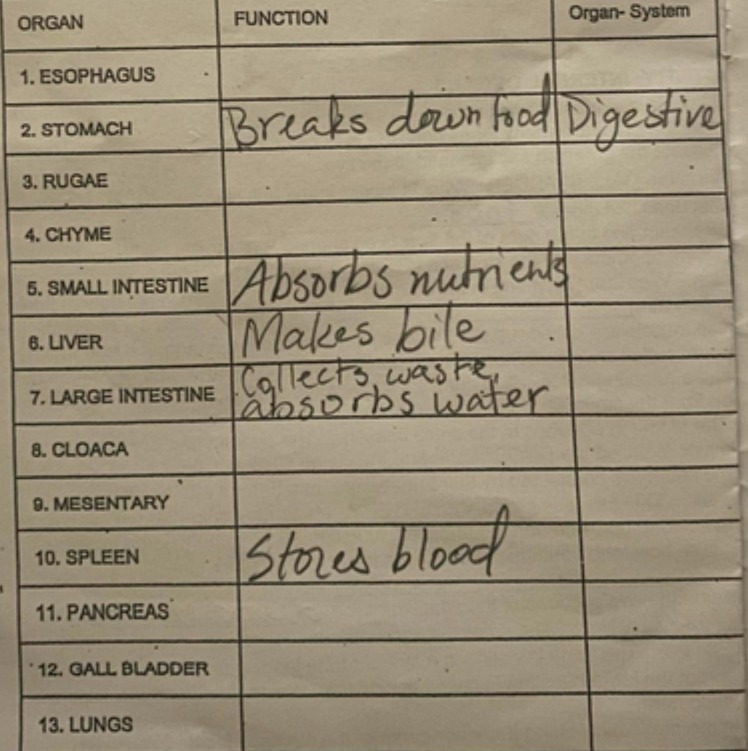 ORGAN FUNCTION Organ- System
1. ESOPHAGUS
2. STOMACH Breaks down food Digestive
3. RUGAE
4. CHYME
5. SMALL INTESTINE Absorbs nutrients
6. LIVER Makes bile
7. LARGE INTESTINE Collects waste,
absorbs water
8. CLOACA
9. MESENTARY
10. SPLEEN Stores blood
11. PANCREAS
12. GALL BLADDER
13. LUNGS